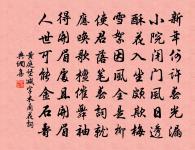 新年何許春光漏
小院閉門風日透
酥花入坐頗欺梅
雪絮因風全是柳
使君落筆春詞就
應喚歌檀催舞袖
得開眉處且開眉
人世可能金石壽
黃庭堅減字木蘭花詞